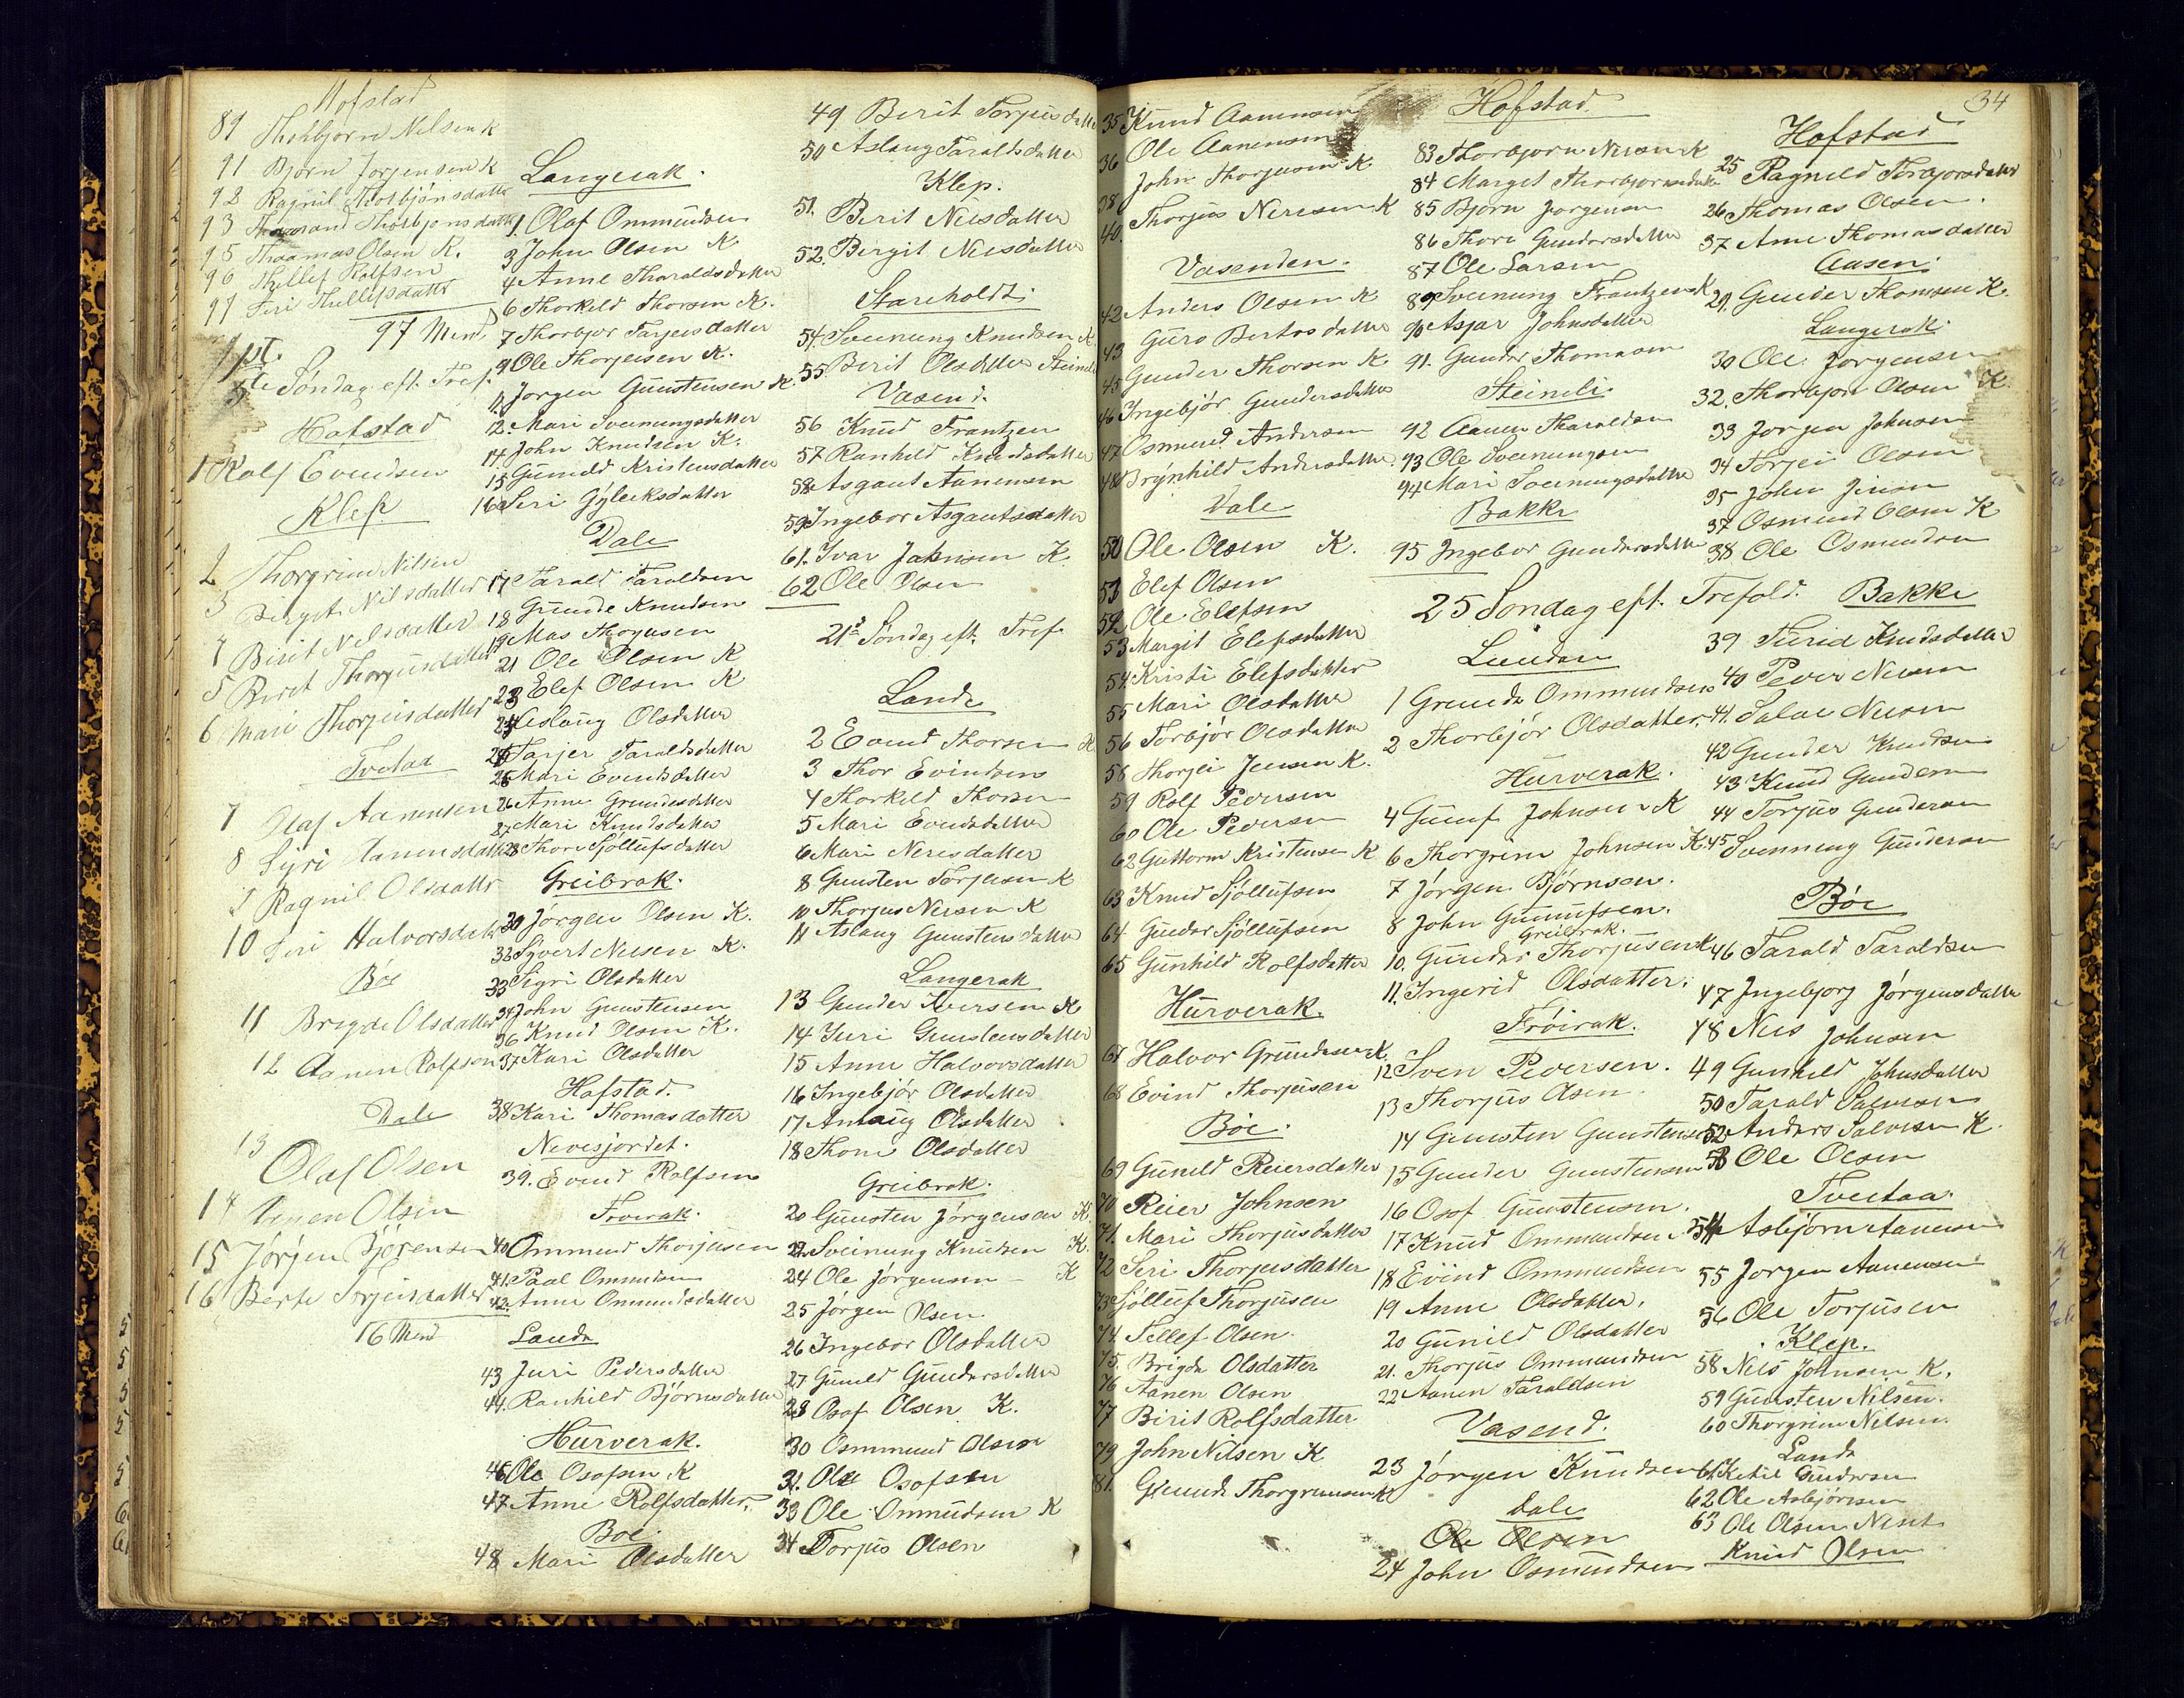 Hofstad
89 Thorbjørn Nilsen K
91 Bjørn Jorgensen K
92 Ragnil Thorbjönsdattr
93 Thorbjønsdattr
95 Thaamas Olsen K.
96 Thellef Rolfsen
97 Siri Thellefsdattr
97 Mend
Søndag eft. Tref.
Hofstad
1 Rolf Evendsen
Klep
2 Thorgrim Nilsen
3 Birget Nilsdatter
4 Birit Nilsdatter
5 Birit Thorjusdatter
6 Mari Thorjeisdatter
Tveitaa
7 Olaf Aanensen
8 Syri Aanensdatter
9 Ragnil Olsdattr
10 Siri Halvorsdatr
Böe
11 Brigde Olsdatter
12 Aanen Rolfsen
Dale
13 Olaf Olsen
14 Aanen Olsen
15 Jørjen Bjørensen
16 Berte Torjeisdatter
16 Mend
Langerak.
1. Olaf Ommundsen
3 John Olsen K
4 Anne Tharaldsdatter
6 Thorkild Thorsen K.
7 Thorbjør Tarjeisdatter
9 Ole Thorjeisen K.
11 Jorgen Gunstensen K.
12. Mari Sveinungsdatter
14 John Knudsen K.
15 Gunild Kristensdatter
16 Siri Gjyleiksdatter
Dale
17 Tarald Taraldsen
18 Grunde Knudsen
19 Mas Thorjusen
21 Ole Olsen K
23 Elef Olsen K
24 Aslaug Olsdatter
Tarjer Taraldsdatter
25 Mari Evendsdatter
26 Anne Grundesdatter
27 Mari Knudsdatter
28 Thore Sjøllufsdatter
Greibrak.
30 Jørgen Olsen K.
32 Syvert Nilsen K.
33 Sigri Olsdatter
34 John Gunstensen
36 Knud Olsen K.
37 Kari Olsdatter
Hafstad.
38 Kari Thomasdatter
Nevesjordet.
39. Evend Rolfsen
Froirak.
40 Ommund Thorjusen
41. Paal Ommundsen
42. Anne Ommundsdatter
Lande
43 Juri Pedersdatter
44. Ranhild Bjørnsdatter
Hurverak.
46 Ole Osofsen K
47 Anne Rolfsdatter.
Boe.
48 Mari Olsdatter
49 Berit Torjusdatter
50 Aslaug Taraldsdatter
Klep.
51. Berit Nilsdatter
52. Bergit Nilsdatter
Stareholdt.
54. Sveinung Knudsen K.
55. Berit Olsdatter Steinli
Vasend.
56 Knud Frantzen
57 Ranhild Knudsdatter
58 Asgaut Aanensen
59 Ingebor Asgautsdatter
61. Ivar Jakobsen K.
62 Ole Olsen
21de Søndag eft. Tref.
Lande
2 Evend Thorsen K
3 Thor Evindsen
4 Thorkild Thorsen
5 Mari Evendsdatter
6 Mari Nerisdatter
8 Gunsten Torjusen K
10 Thorjus Nersen K
11 Aslaug Gunstensdatter
Langerak
13 Gunder Iversen K
14 Juri Gunstensdatter
15 Anne Halvorsdatter
16 Ingebjör Olsdatter
17 Anlaug Olsdatter
18 Thone Olsdatter
Greibrak.
20 Gunsten Jørgensen K.
22. Sveinung Knudsen K.
24 Ole Jørgensen - K
25 Jørgen Olsen
26 Ingebor Olsdatter
27 Gunild Gundersdatter
28 Osof Olsen K.
30 Osmmund Olsen
31. Ole Osofsen
33 Ole Ommundsen K
34 Torjus Olsen
35 Knud Aanensen
36 Ole Aanensen
38 John Thorjusen K
40. Thorjus Nerisen K
Vasenden.
42 Anders Olsen K
43 Guro Bertosdatter
45 Gunder Thorsen K
46 Ingebjör Gundersdatter
47 Osmund Andersen
48 Brynhild Andersdatter.
Dale
50 Ole Olsen K.
51 Elef Olsen
52. Ole Elefsen
53 Margit Elefsdatter
54. Kristi Elefsdatter
55 Mari Olsdatter
56 Torbjør Olsdatter
58 Thorjei Jensen K.
59 Rolf Pedersen
60 Ole Pedersen
62 Guttorm Kristensen K
63 Knud Sjøllufsen
64 Gunder Sjøllufsen
65 Gunhild Rolfsdatter
Hurverak.
67 Halvor Grundesen K.
68 Evind Thorjusen
Böe.
69 Gunild Reiersdatter
70 Reier Johnsen
71. Mari Thorjusdatter
72 Siri Thorjusdatter
73 Sjølluf Thorjusen
74. Tellef Olsen.
75. Brigde Olsdatter
76 Aanen Olsen
77 Birit Rolfsdatter
79 John Nilsen K
81. Grunde Thorgrimsen K
Hofstad.
83 Thorbjorn Nilsen K
84 Marget Thorbjornsdatter
85 Bjørn Jorgensen
86 Thore Gundersdatter
87 Ole Larsen
89 Sveinung Frantzen K
90 Asjør Johnsdatter
91. Gunder Thomasen
Steinli.
92 Aanen Tharaldsen
93 Ole Sveinungsen
94 Mari Sveinungsdatter
Bakke
95 Ingebor Gundersdatter
25 Søndag eft. Trefold.
Lunden
1 Grunde Ommundsen
2 Thorbjør Olsdatter.
Hurverak.
4 Gunuf Johnsen K
6 Thorgrim Johnsen K.
7 Jørgen Bjørnsen.
8 John Gunufsen.
Greibrak.
10. Gunder Thorjusen K
11. Ingerid Olsdatter.
Fröirak.
12 Sven Pedersen.
13 Thorjus Olsen.
14 Gunsten Gunstensen
15 Gunder Gunstensen
16 Osof Gunstensen.
17 Knud Ommundsen
18 Evind Ommundsen
19 Anne Olsdatter.
20 Gunild Olsdatter
21. Thorjus Ommundsen
22 Aanen Taraldsen
Vasend.
23 Jørgen Knudsen
Dale
Ole Olsen
24 John Osmundsen
34
Hofstad
25 Ragnild Torbjornsdatter
26 Thomas Olsen.
27 Anne Thomasdatter
Aasen.
29. Gunder Thomsen K.
Langerak.
30 Ole Jorgensen
32. Thorbjorn Olsen K.
33 Jorgen Johnsen
34 Torjei Olsen
35 John Jensen
37 Osmund Olsen K
38 Ole Osmundsen
Bakke
39 Turid Knudsdatter
40 Peder Nilsen
41. Salve Nilsen
42 Gunder Knudsen
43 Knud Gundersen
44 Torjus Gundersen
45 Svenning Gundersen
Böe
46 Tarald Taraldsen
47 Ingebjorg Jörgensdatter
48 Nils Johnsen
49 Gunhild Johnsdatter
50 Tarald Salvesen
52 Anders Salvesen K.
53 Ole Olsen
Tveitaa.
54 Asbjørn Aanensen
55 Jorgen Aanensen
56 Ole Torjusen
Klep.
58 Nils Johnsen K.
59 Gunsten Nilsen.
60 Thorgrim Nilsen.
Lande
61. Ketil Gundersen
62 Ole Asbjörnsen
63 Ole Olsen Neset
Knud Olsen